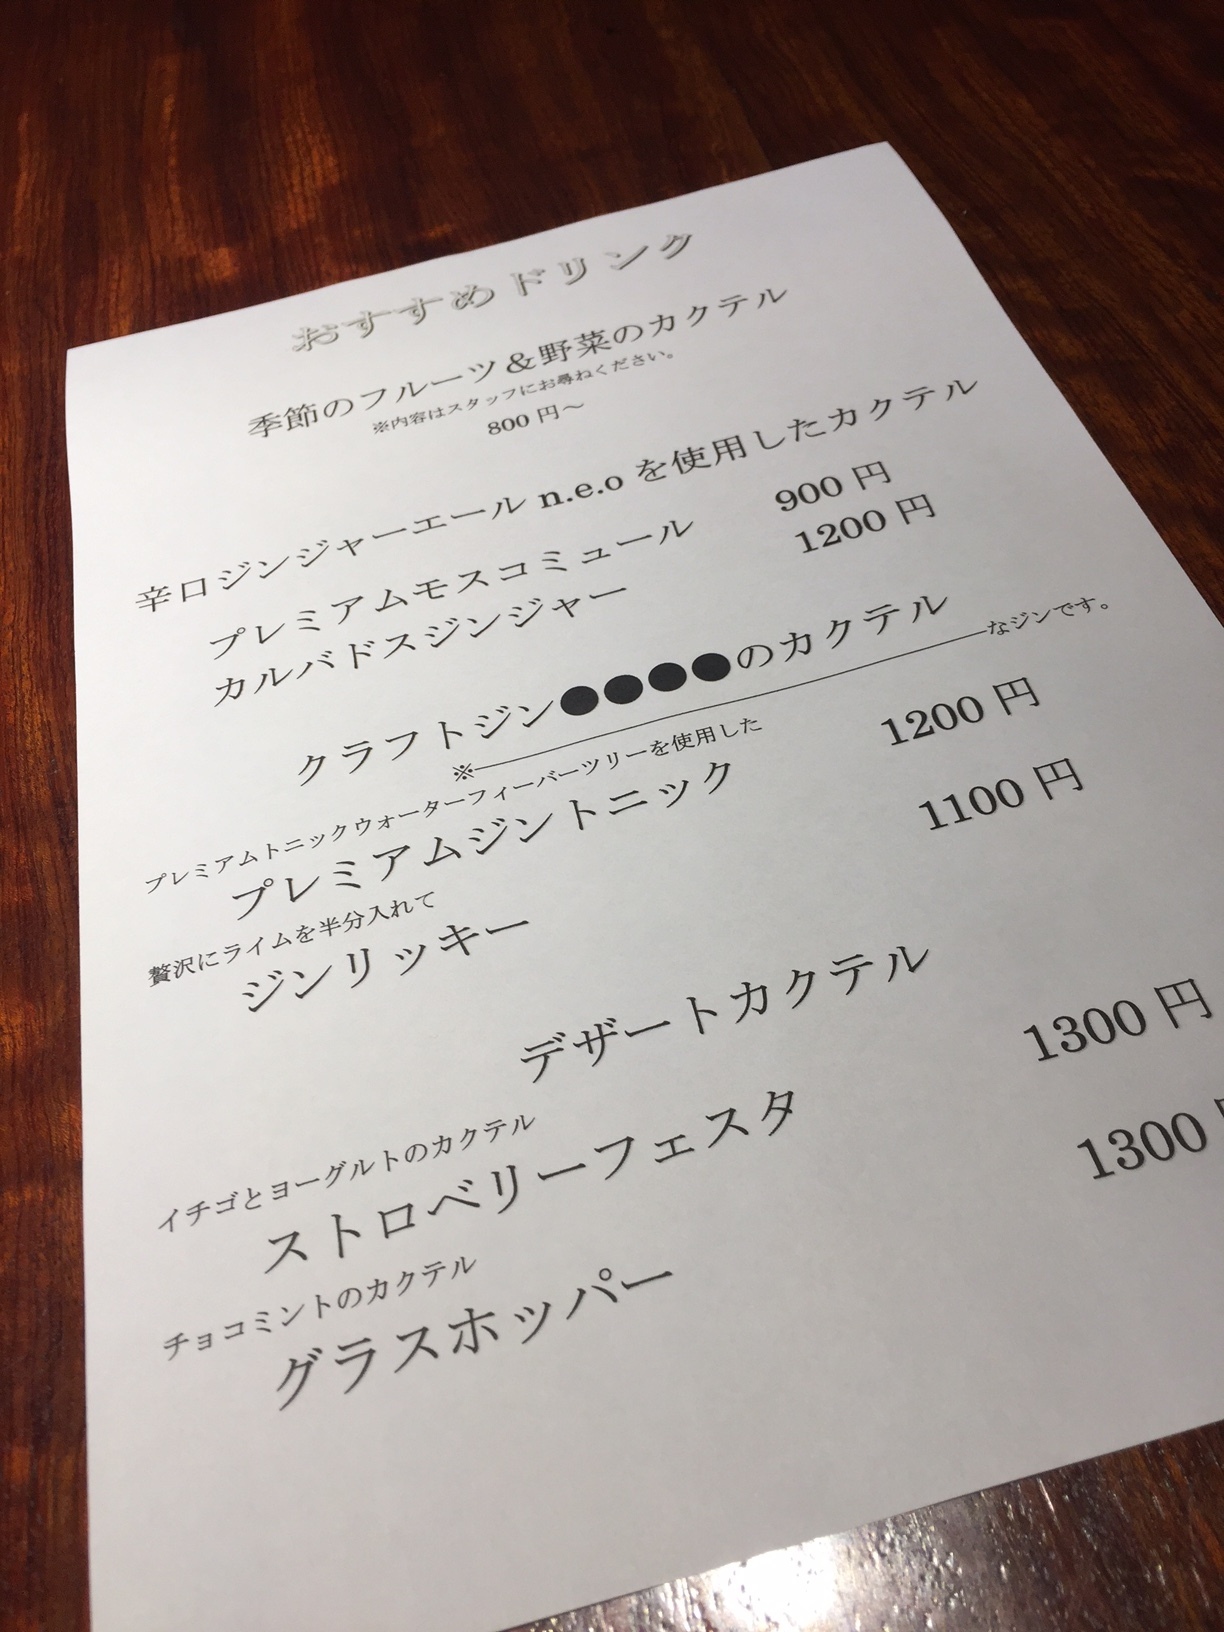 おすすめドリンク
季節のフルーツ＆野菜のカクテル
※内容はスタッフにお尋ねください。
800 円～
辛口ジンジャーエール n.e.o を使用したカクテル
プレミアムモスコミュール 900 円
カルバドスジンジャー 1200 円
クラフトジン●●●●のカクテル
※――――――――――――――――なジンです。
プレミアムトニックウォーターフィーバーツリーを使用した
プレミアムジントニック 1200 円
贅沢にライムを半分入れて
ジンリッキー 1100 円
デザートカクテル
イチゴとヨーグルトのカクテル
ストロベリーフェスタ 1300 円
チョコミントのカクテル
グラスホッパー 1300